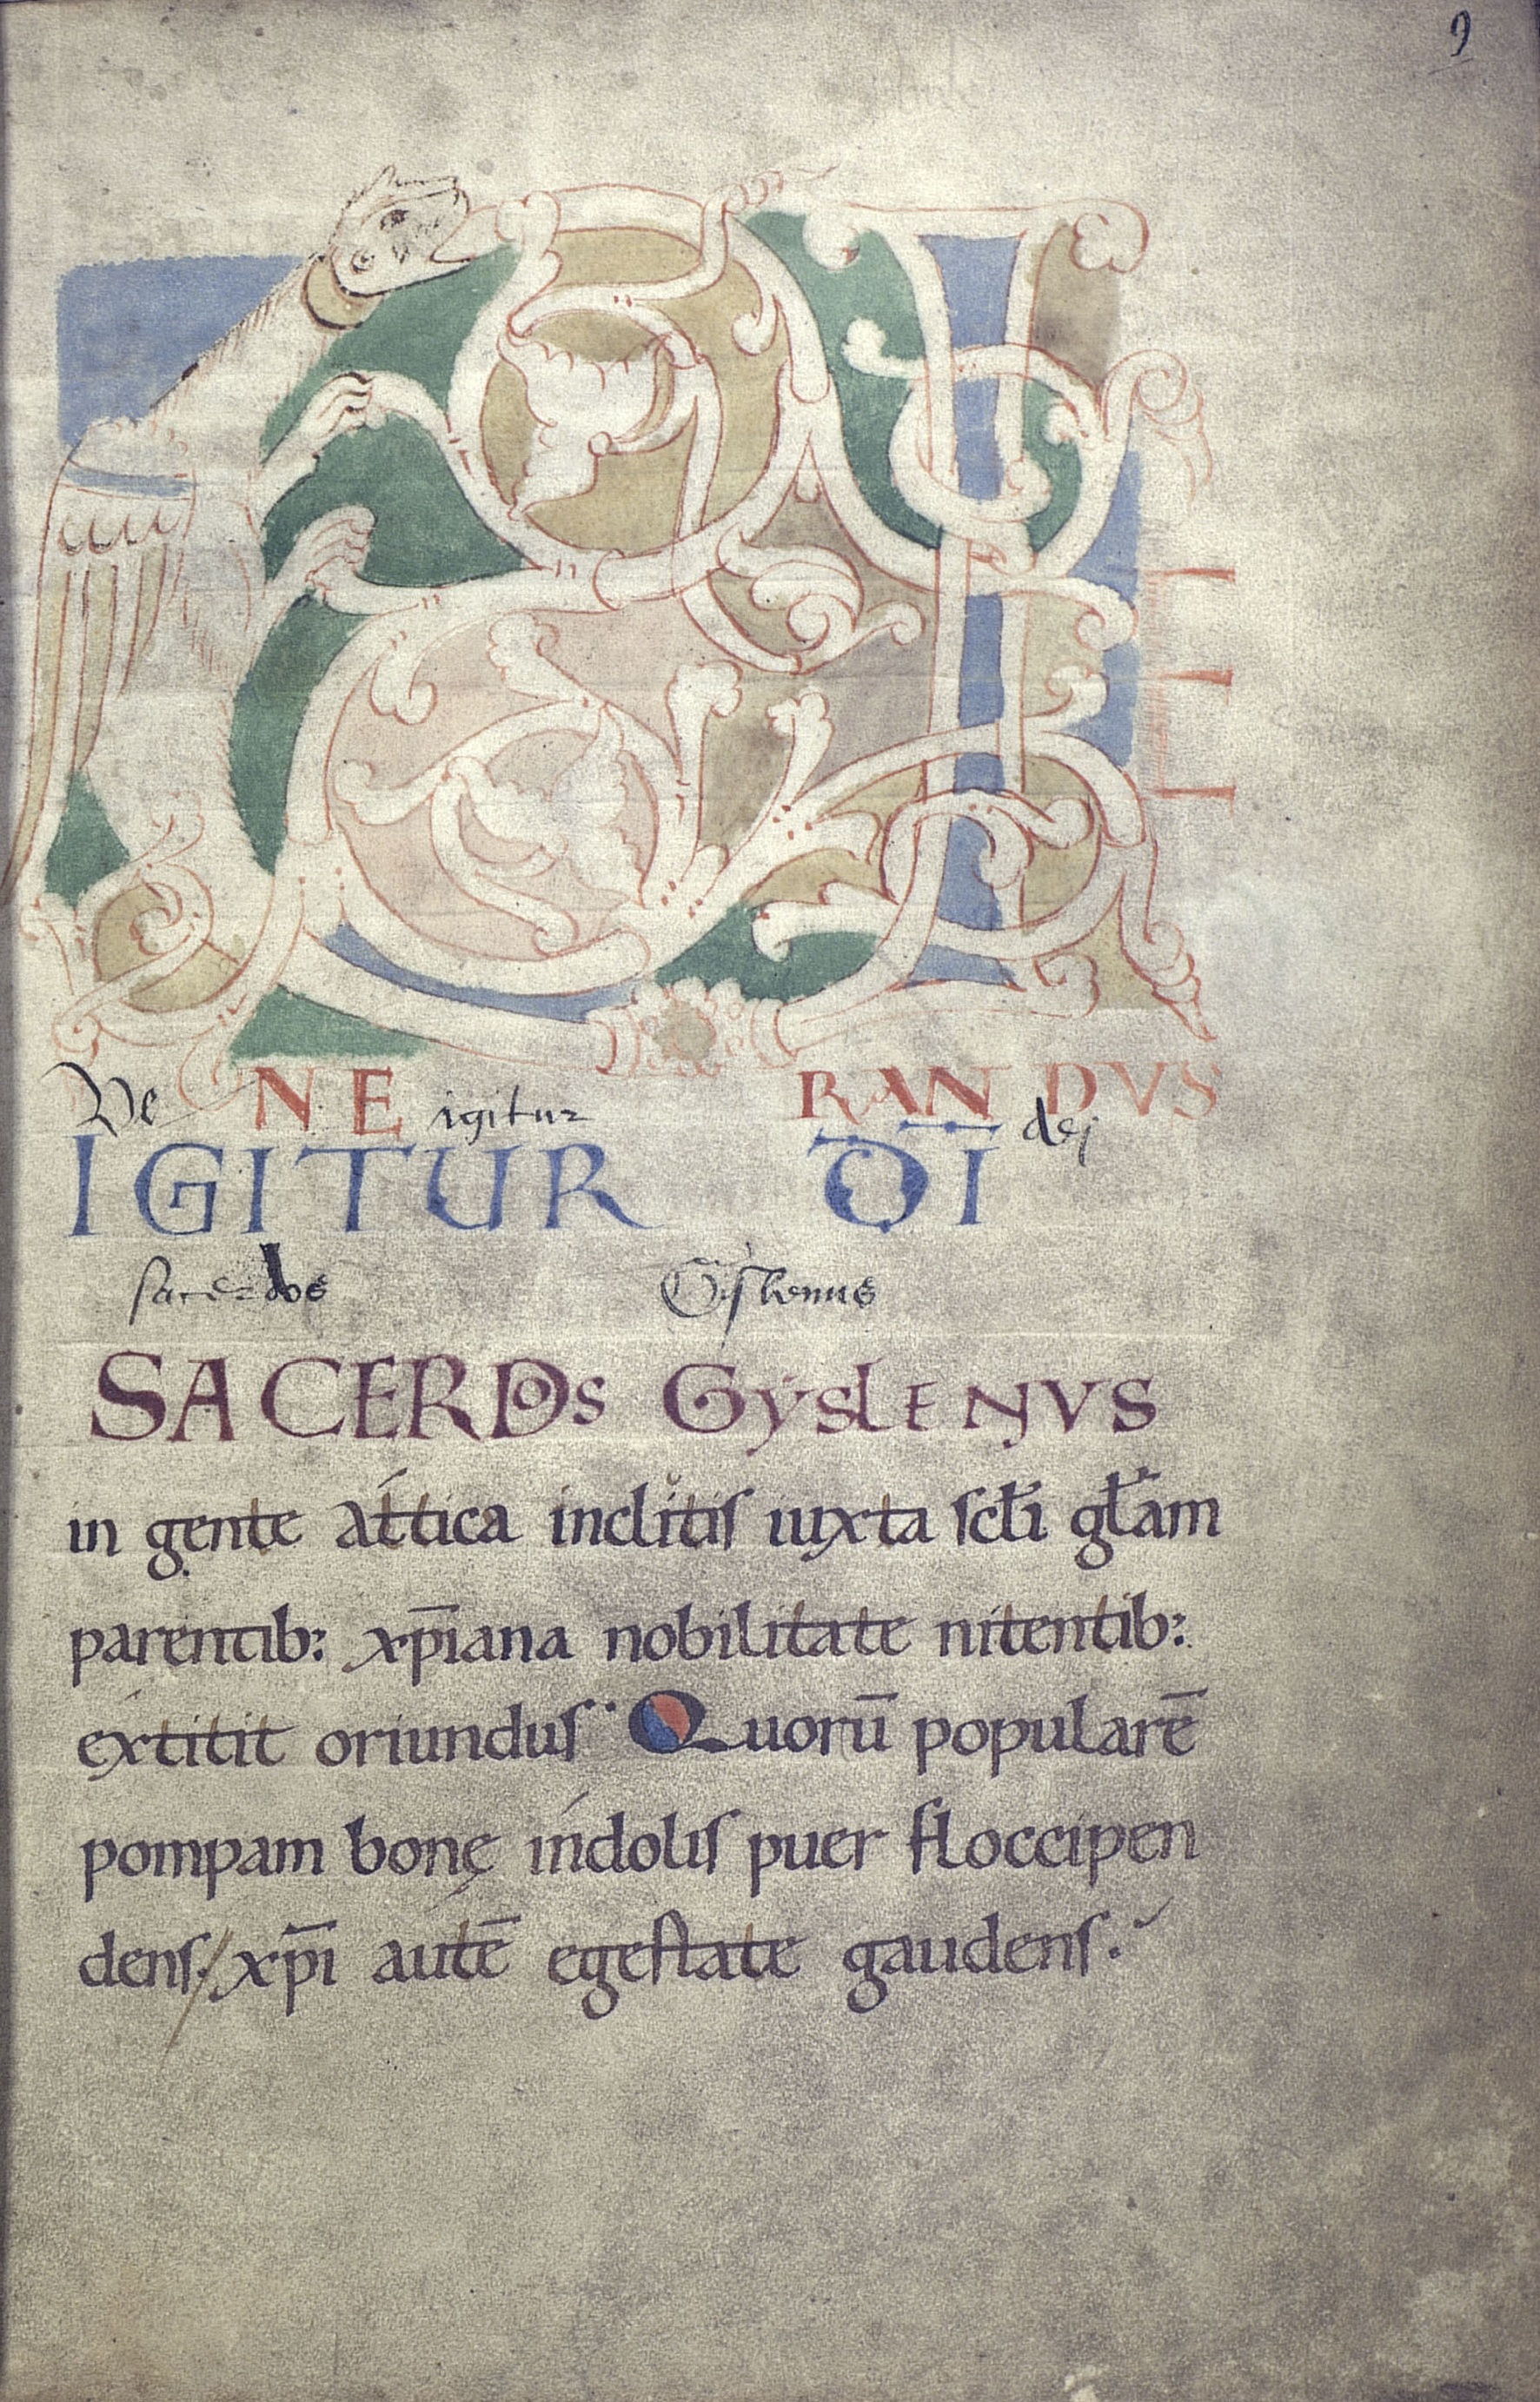 9
VE
NE RANDVS
Ve igitur dei
IGITUR D̅I̅
sacerdos Gislenus
SACERDOs GẏslENVS
in gente attica inclitis iuxta scłi głam
parentib: xp̅iana nobilitate nitentib:
extitit oriundus· Quorū populare̅
pompam bonę indolis puer floccipen
dens·/ xp̅i aute̅ egestate gaudens·